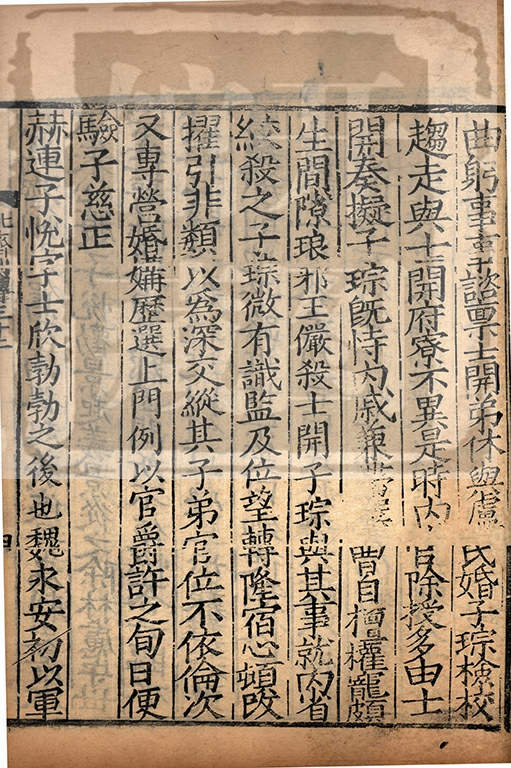 曲躬事事諮禀士開弟休與盧氏婚子琮檢校
趨走與士開府寮不異是時內官除授多由士
開奏擬子琮既恃內戚兼帶選曹自擅權寵頗
生間隙琅邪王儼殺士開子琮與其事就內省
絞殺之子琮微有識監及位望轉隆宿心頓改
擢引非類以為深交縱其子弟官位不依倫次
又專營婚媾歷選上門例以官爵許之旬日便
驗子慈正
赫連子悅字士欣勃勃之後也魏永安初以軍